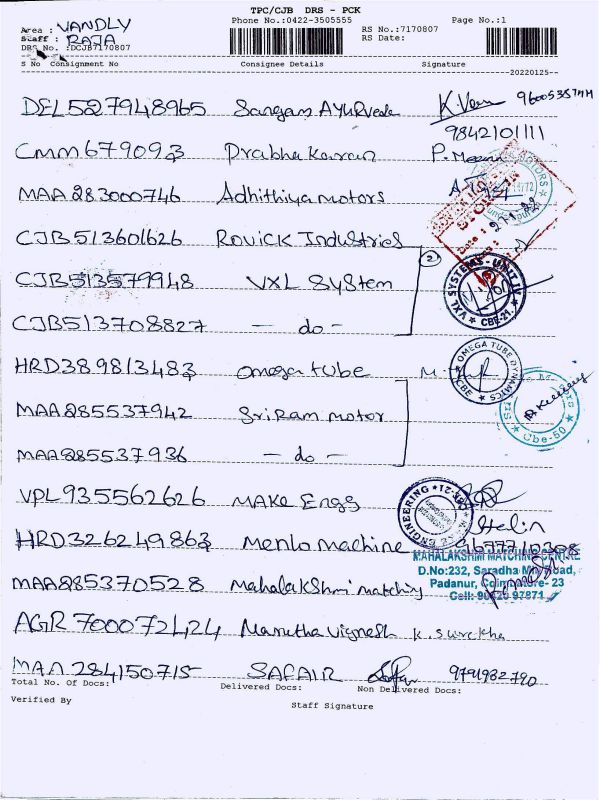 TPC/CJB DRS - PCK
Phone No.:0422-3505555 Page No.:1
Area : VANDLY
RS No.:7170807
Staff : RAJA
RS Date:
DRS No. :DCJB7170807
S No Consignment No Consignee Details Signature
20220125
DEL527948965 Sangam Ayurveda K.Venu
9842101111
CMM679093 Prabhakaran P.
MAA283000746 Adhithiya motors
CJB513601626 Rovick Industries
CJB513579948 VXL System
2
SYSTEMS-UNIT.IV VXL CBE-21.
CJB513708827 - do -
HRD389813483 omega tube M.
OMEGA TUBE DYNAMICS CBE
MAA285537942 Sri Ram motor
Cbe-50
MAA285537936 - do -
VPL935562626 MAKE Engg
ENGINEERING
HRD326249863 Menlo machine Stelin
MAHALAKSHMI MATCHING CENTRE
D.No:232, Saradha Mill Road,
MAA285370528 Mahalakshmi matching Padanur, Coimbatore- 23
Cell: 97871
AGR700072424 Marutha vignesh K. Surekha
MAA284150715 SAFAIR 9791932790
Total No. Of Docs: Delivered Docs: Non Delivered Docs:
Verified By Staff Signature